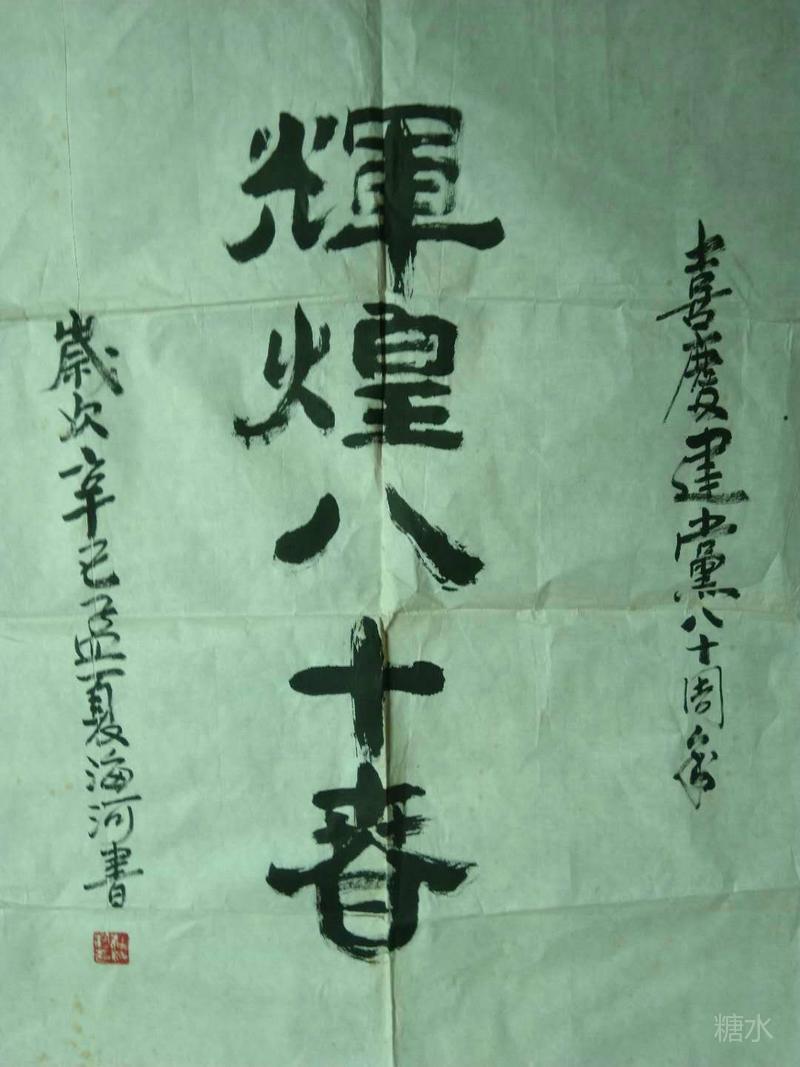 喜慶建黨八十周年
輝煌八十春
歲次辛巳孟夏海河書
糖水